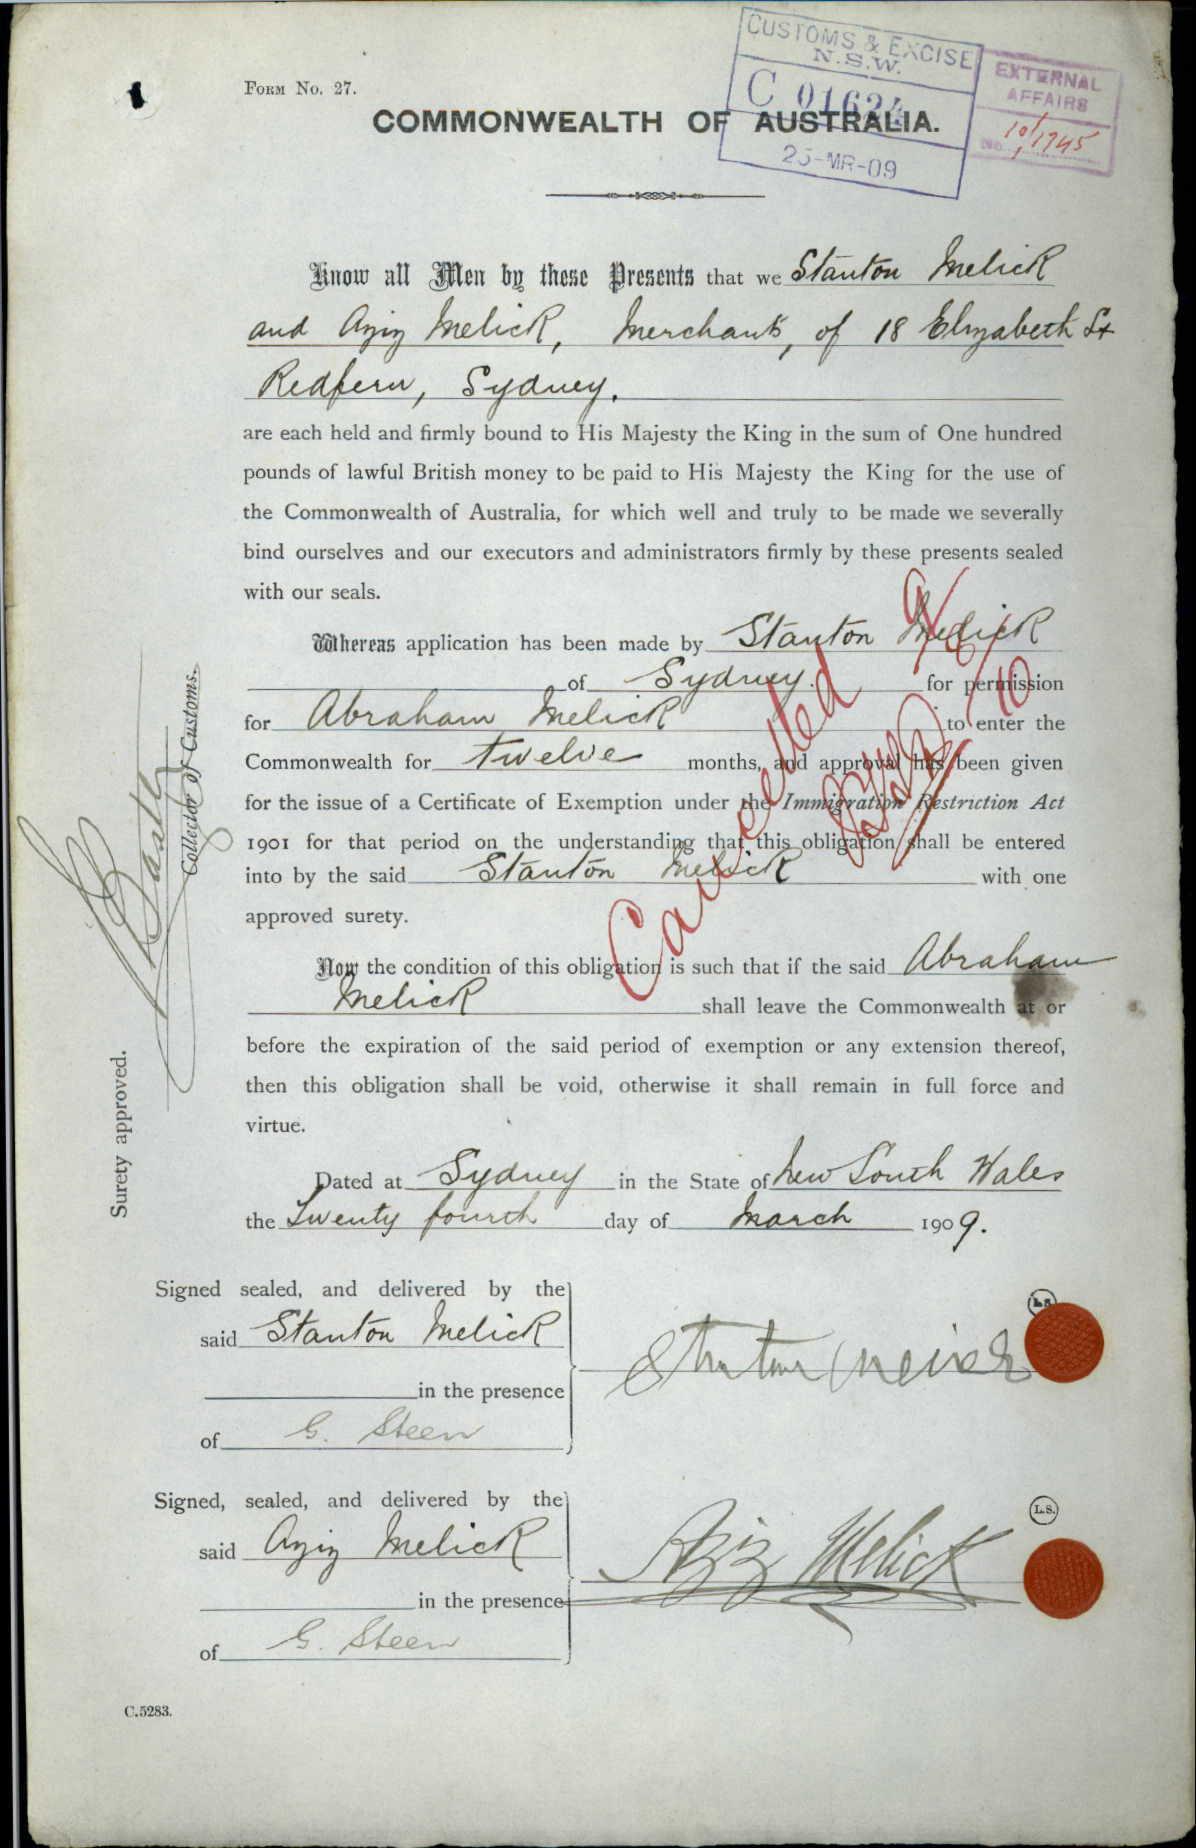 CUSTOMS & EXCISE
N.S.W.
C 01624
25-MR-09
EXTERNAL
AFFAIRS
No. 10/1745
Form No. 27.
COMMONWEALTH OF AUSTRALIA.
Know all Men by these Presents that we Stanton Melick
and Aziz Melick, Merchants, of 18 Elizabeth St
Redfern, Sydney.
are each held and firmly bound to His Majesty the King in the sum of One hundred
pounds of lawful British money to be paid to His Majesty the King for the use of
the Commonwealth of Australia, for which well and truly to be made we severally
bind ourselves and our executors and administrators firmly by these presents sealed
with our seals.
Whereas application has been made by Stanton Melick
of Sydney. for permission
for Abraham Melick to enter the
Commonwealth for twelve months, and approval has been given
for the issue of a Certificate of Exemption under the Immigration Restriction Act
1901 for that period on the understanding that this obligation shall be entered
into by the said Stanton Melick with one
approved surety.
Cancelled
Now the condition of this obligation is such that if the said Abraham
Melick shall leave the Commonwealth at or
before the expiration of the said period of exemption or any extension thereof,
then this obligation shall be void, otherwise it shall remain in full force and
virtue.
Surety approved.
Collector of Customs.
Dated at Sydney in the State of New South Wales
the Twenty fourth day of March 1909.
Signed sealed, and delivered by the
said Stanton Melick
in the presence
of G. Steen
L.S.
Signed, sealed, and delivered by the
said Aziz Melick
in the presence
of G. Steen
Aziz Melick
L.S.
C.5283.